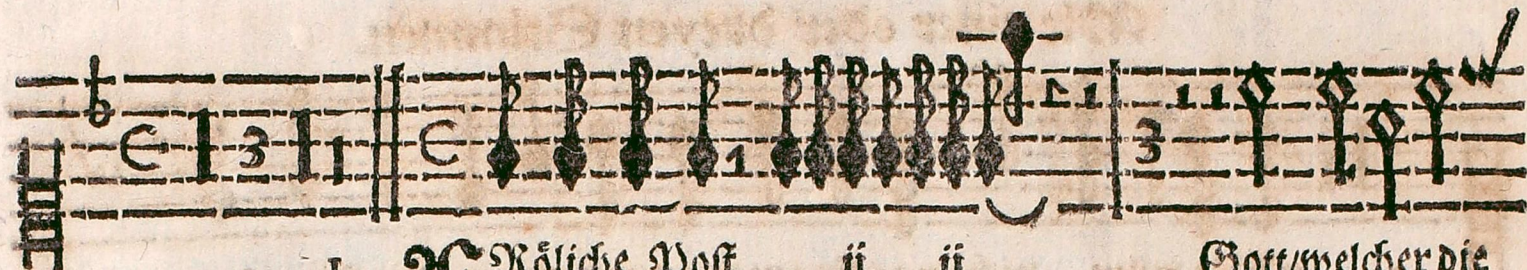 Röliche Post ij ij Gott/welcher die